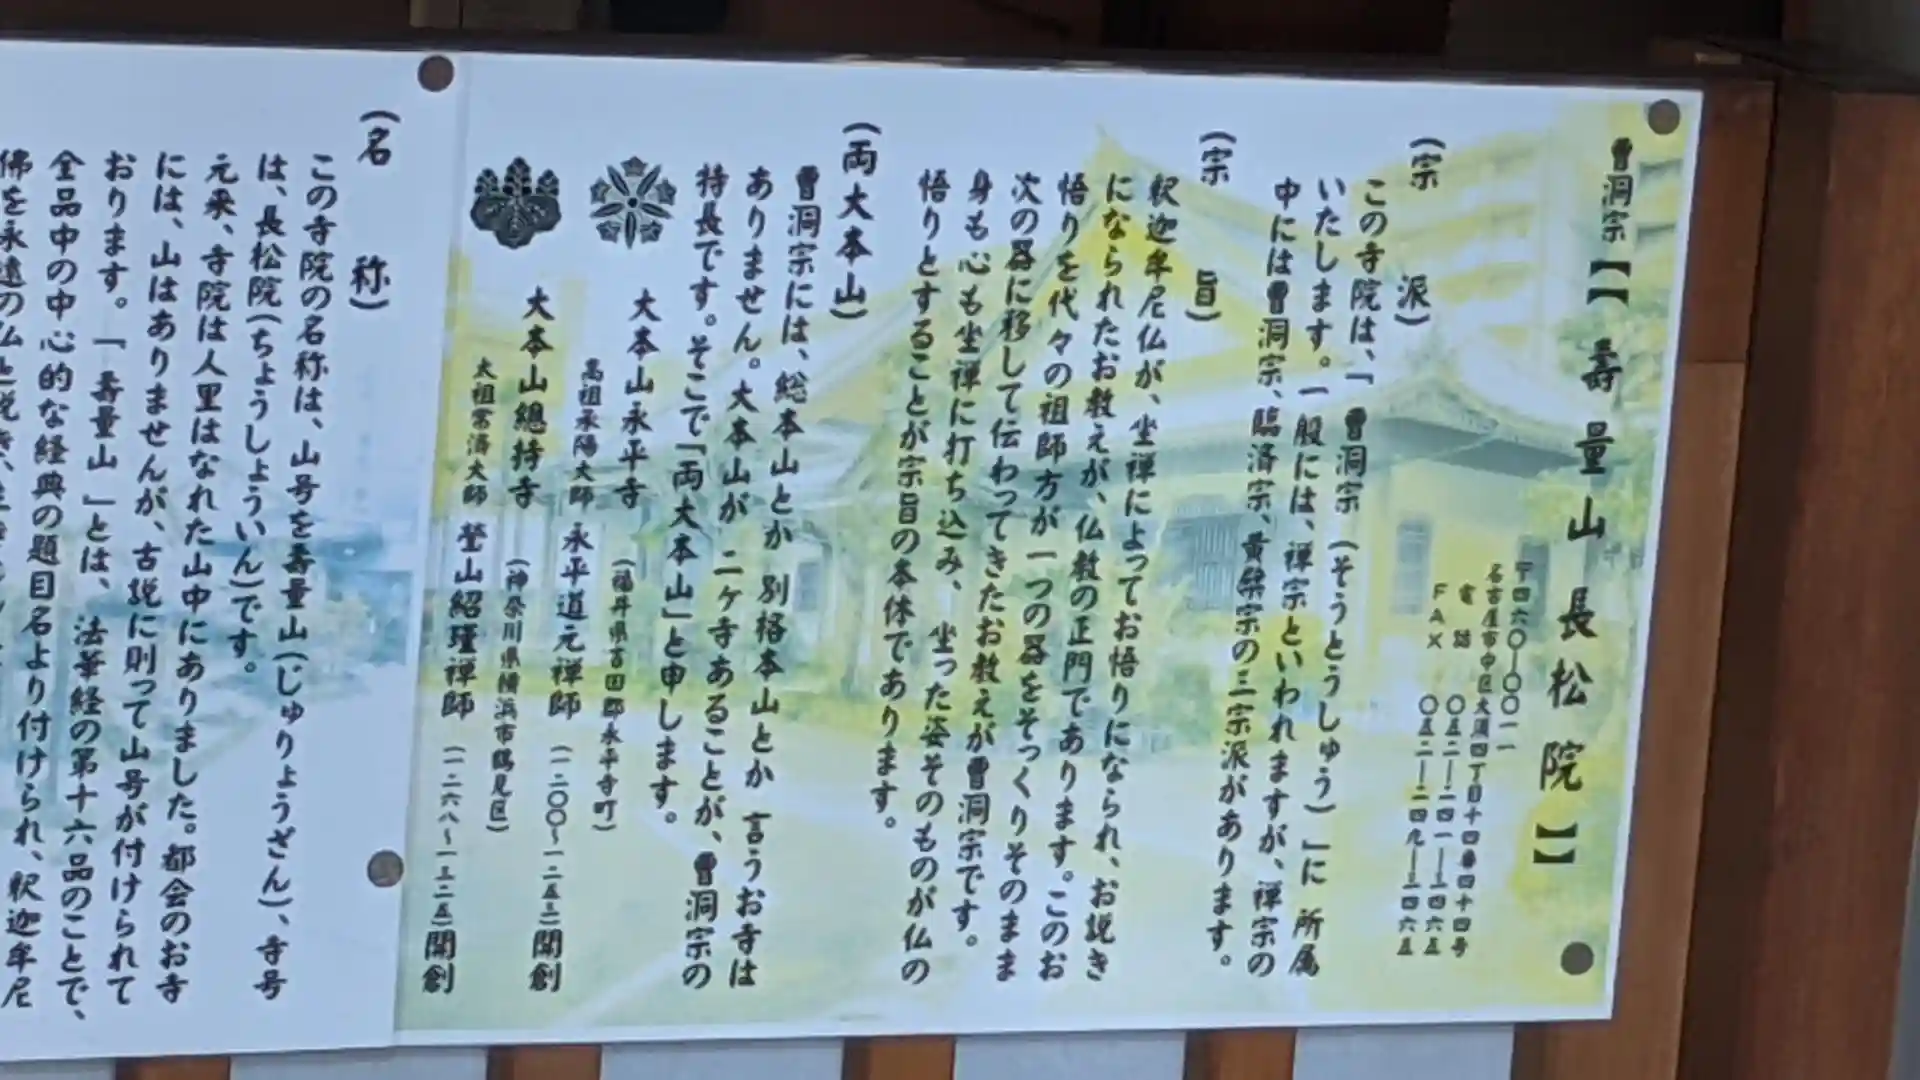 曹洞宗【壽量山長松院】
〒四六〇―〇〇一一
名古屋市中区大須四丁目十四番四十四号
電話 〇五二―二四一―一四六五
FAX 〇五二―二四九―一四六五
(宗派)
この寺院は、「曹洞宗(そうとうしゅう)」に所属
いたします。一般には、禅宗といわれますが、禅宗の
中には曹洞宗、臨済宗、黄檗宗の三宗派があります。
(宗旨)
釈迦牟尼仏が、坐禅によってお悟りになられ、お説き
になられたお教えが、仏教の正門であります。このお
悟りを代々の祖師方が一つの器をそっくりそのまま
次の器に移して伝わってきたお教えが曹洞宗です。
身も心も坐禅に打ち込み、坐った姿そのものが仏の
悟りとすることが宗旨の本体であります。
(両大本山)
曹洞宗には、総本山とか 別格本山とか 言うお寺は
ありません。大本山が 二ヶ寺あることが、曹洞宗の
特長です。そこで「両大本山」と申します。
大本山永平寺 (福井県吉田郡永平寺町)
高祖承陽大師 永平道元禅師 (一二〇〇~一二五三)開創
大本山總持寺 (神奈川県横浜市鶴見区)
太祖常済大師 瑩山紹瑾禅師 (一二六八~一三二五)開創
(名称)
この寺院の名称は、山号を壽量山(じゅりょうざん)、寺号
は、長松院(ちょうしょういん)です。
元来、寺院は人里はなれた山中にありました。都会のお寺
には、山はありませんが、古説に則って山号が付けられて
おります。「壽量山」とは、法華経の第十六品のことで、
全品中の中心的な経典の題目名より付けられ、釈迦牟尼
佛を永遠の仏と説き、